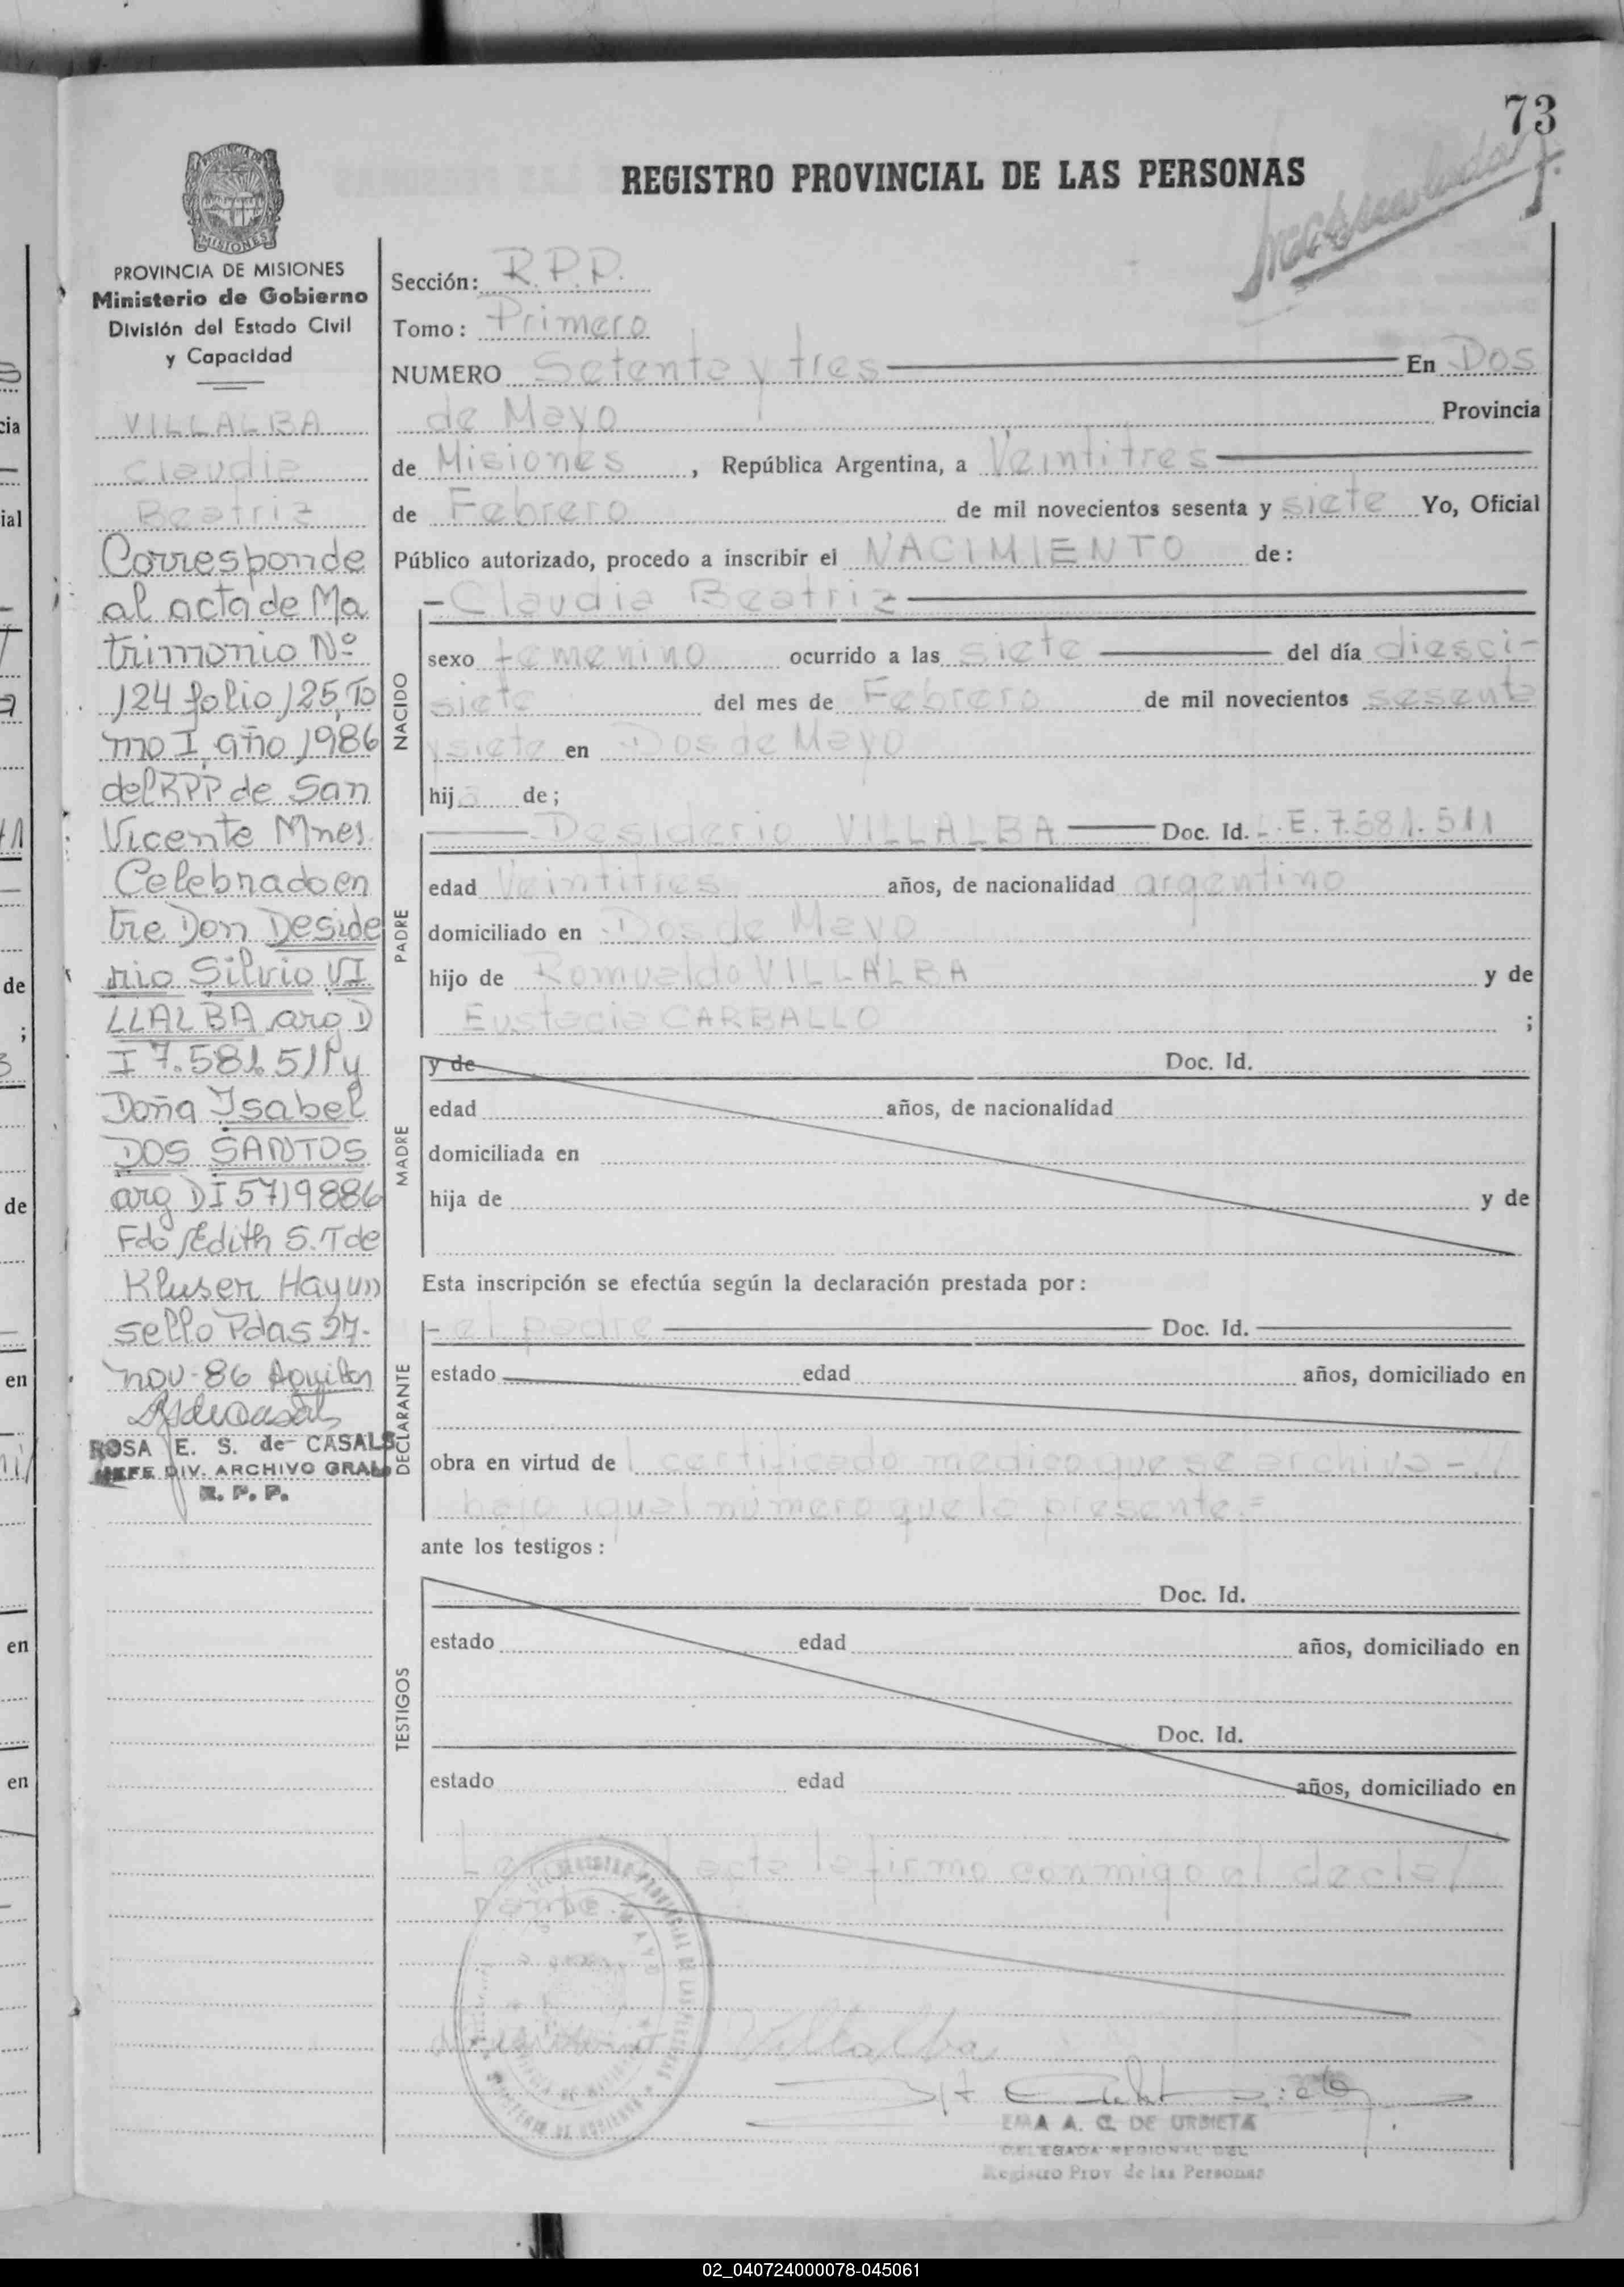 73
REGISTRO PROVINCIAL DE LAS PERSONAS
MISIONES
PROVINCIA DE MISIONES
Ministerio de Gobierno
División del Estado Civil
y Capacidad
VILLALBA
Claudia
Beatriz
Corresponde
al acta de Ma
trimonio Nº
124 folio 125, To
mo I, año 1986
del RPP de San
Vicente Mnes.
Celebrado en
tre Don Deside
rio Silvio VI
LLALBA arg D
I 7.581.511 y
Doña Isabel
DOS SANTOS
arg DI 5719886
Fdo Edith S. T de
Kluser Hay un
sello Pdas 27-
nov-86
ROSA E. S. de CASALS
JEFE DIV. ARCHIVO GRAL
R. P. P.
Sección: R.P.P.
Tomo: Primero
NUMERO Setenta y tres En Dos
de Mayo Provincia
de Misiones, República Argentina, a Veintitres
de Febrero de mil novecientos sesenta y siete Yo, Oficial
Público autorizado, procedo a inscribir el NACIMIENTO de:
NACIDO
- Claudia Beatriz
sexo femenino ocurrido a las siete del día diesci-
siete del mes de Febrero de mil novecientos sesenta
y siete en Dos de Mayo
hija de;
PADRE
Desiderio VILLALBA Doc. Id. L.E. 7.581.511
edad Veintitres años, de nacionalidad argentino
domiciliado en Dos de Mayo
hijo de Romualdo VILLALBA y de
Eustacia CARBALLO ;
MADRE
y de Doc. Id.
edad años, de nacionalidad
domiciliada en
hija de y de
Esta inscripción se efectúa según la declaración prestada por:
DECLARANTE
- el padre Doc. Id.
estado edad años, domiciliado en
obra en virtud de l certificado medico que se archiva - //
bajo igual número que la presente.=
ante los testigos:
TESTIGOS
Doc. Id.
estado edad años, domiciliado en
Doc. Id.
estado edad años, domiciliado en
acta la firma conmigo el decla/
rante.
Villalba
EMA A. C. DE URBIETA
DELEGADA REGIONAL DEL
Registro Prov de las Personas
02_040724000078-045061